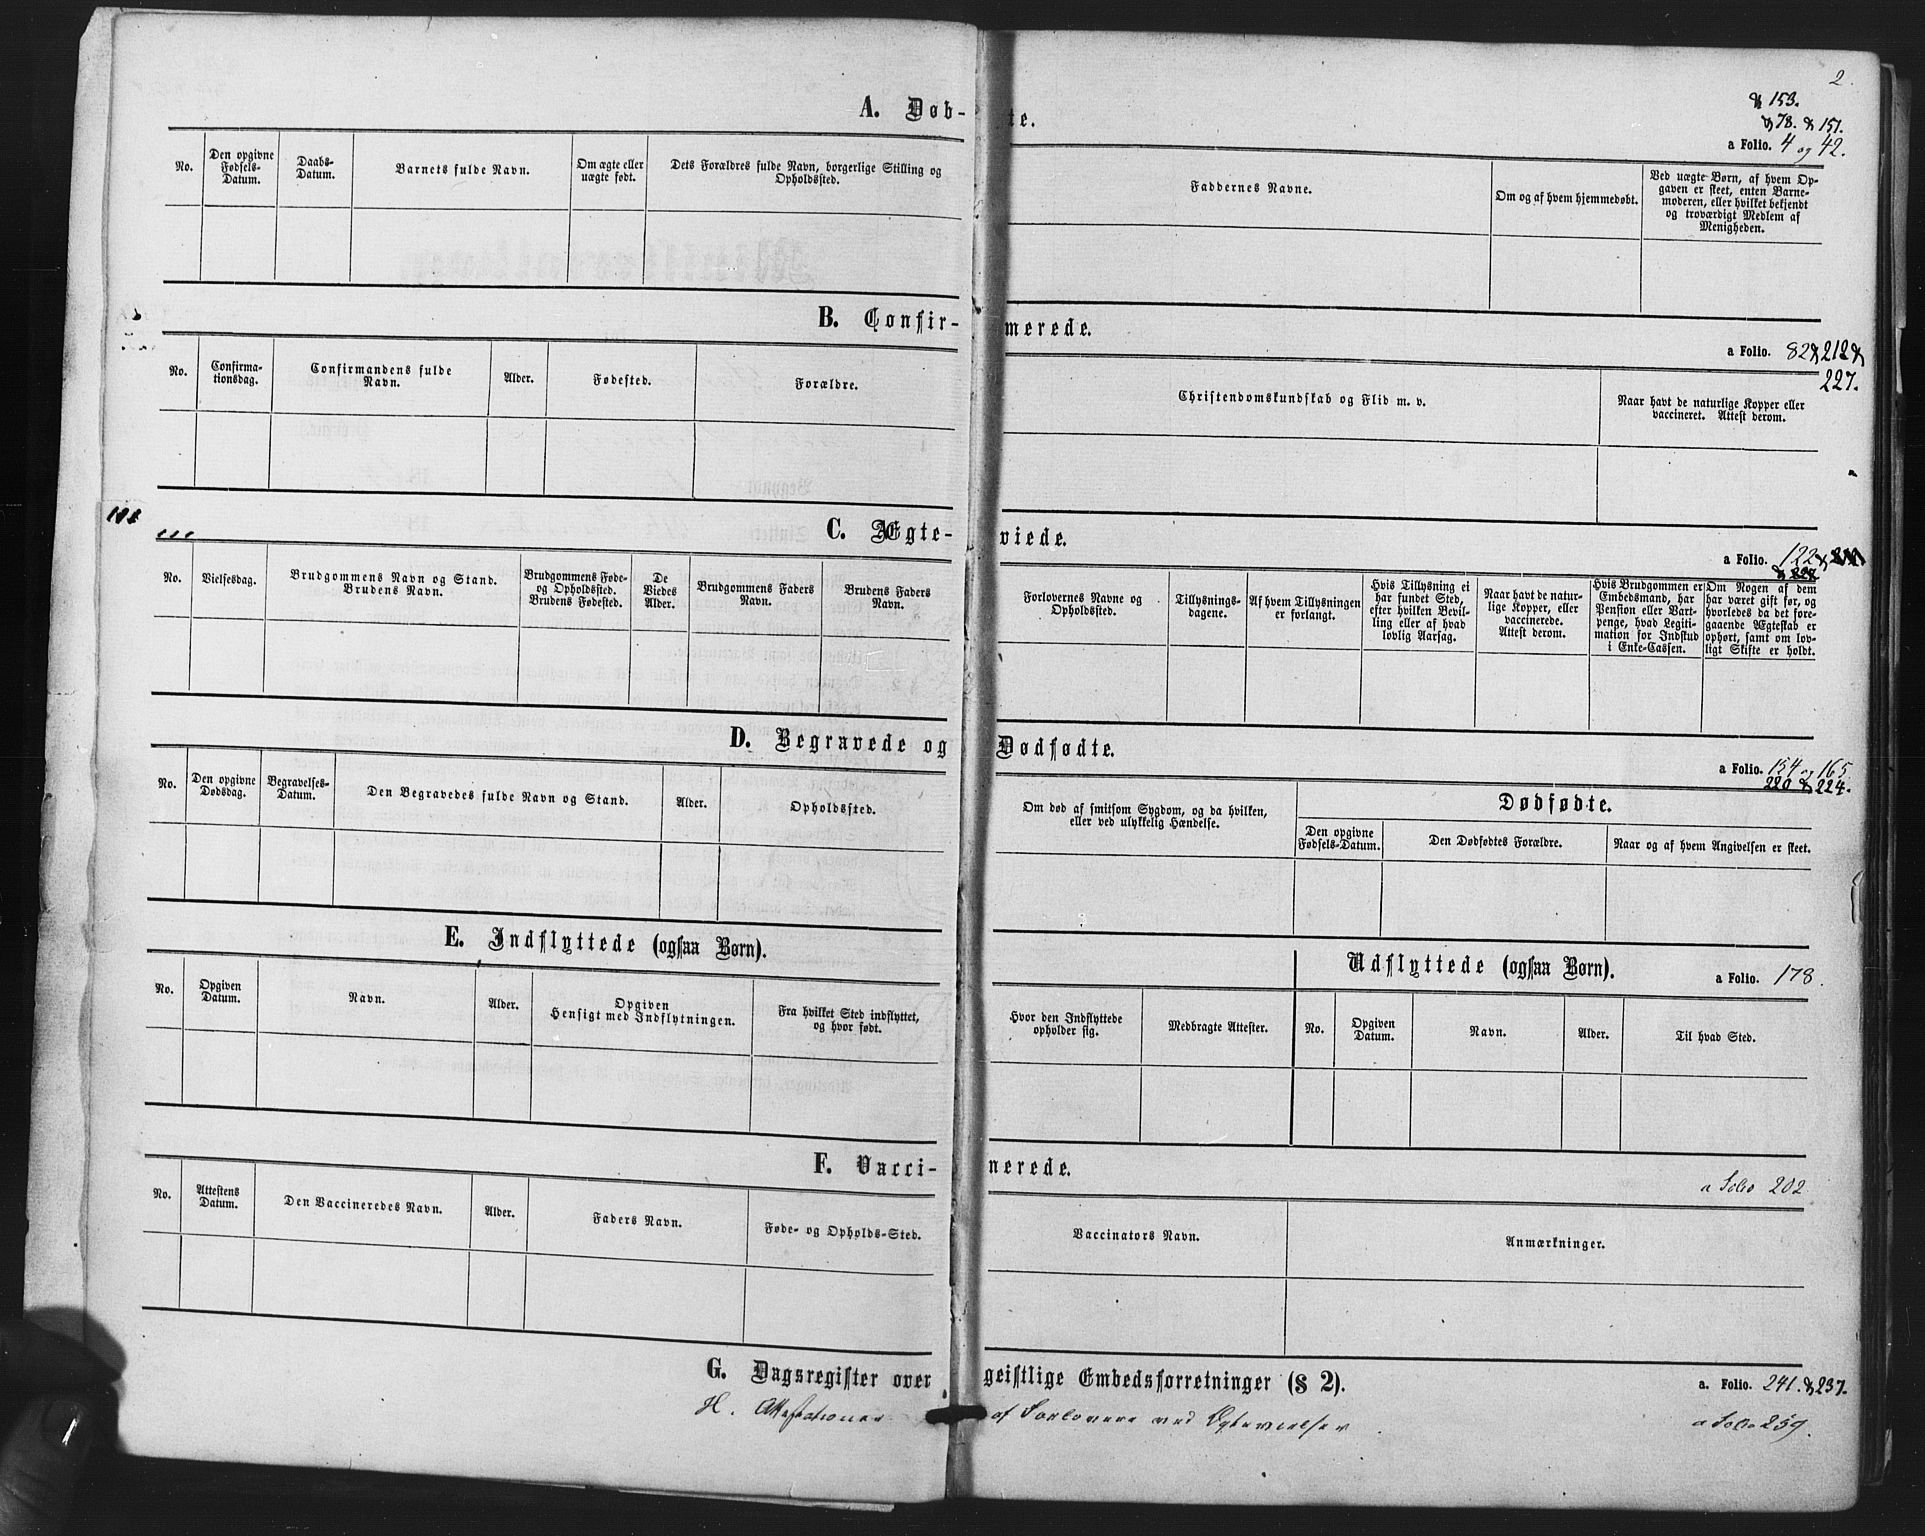 2.
& 153.
& 78. & 151.
A. Døb-te.
a Folio. 4 og 42.
No.
Den opgivne Fødsels-Datum.
Daabs-Datum.
Barnets fulde Navn.
Om ægte eller uægte født.
Dets Forældres fulde Navn, borgerlige Stilling og Opholdssted.
Faddernes Navne.
Om og af hvem hjemmedøbt.
Ved uægte Børn, af hvem Op-
gaven er skeet, enten Barne-
moderen, eller hvilket bekjendt
og troværdigt Medlem af
Menigheden.
B. Confir-merede.
a Folio. 82 & 212 &
227.
No.
Confirma-tionsdag.
Confirmandens fulde Navn.
Alder.
Fødested.
Forældre.
Christendomskundskab og Flid m. v.
Naar havt de naturlige Kopper eller
vaccineret. Attest derom.
C. Ægte-viede.
a Folio. 122 &
No.
Vielsesdag.
Brudgommens Navn og Stand.
Brudens Navn.
Brudgommens Føde-
og Opholdssted.
Brudens Fødested.
De Viedes Alder.
Brudgommens Faders Navn.
Brudens Faders Navn.
Forlovernes Navne og Opholdssted.
Tillysnings-dagene.
Af hvem Tillysningen er forlangt.
Hvis Tillysning ei
har fundet Sted,
efter hvilken Bevil-
ling eller af hvad
lovlig Aarsag.
Naar havt de natur-
lige Kopper, eller
vaccinerede.
Attest derom.
Hvis Brudgommen er
Embedsmand, har
Pension eller Vart-
penge, hvad Legiti-
mation for Indskud
i Enke-Cassen.
Om Nogen af dem
har været gift før, og
hvorledes da det fore-
gaaende Ægteskab er
ophørt, samt om lov-
ligt Skifte er holdt.
D. Begravede og Dødfødte.
a Folio. 154 og 165
220 & 224.
No.
Den opgivne Dødsdag.
Begravelses-Datum.
Den Begravedes fulde Navn og Stand.
Alder.
Opholdssted.
Om død af smitsom Sygdom, og da hvilken,
eller ved ulykkelig Hændelse.
Dødfødte.
Den opgivne Fødsels-Datum.
Den Dødfødtes Forældre.
Naar og af hvem Angivelsen er skeet.
E. Indflyttede (ogsaa Børn).
Udflyttede (ogsaa Børn).
a Folio. 178.
No.
Opgiven Datum.
Navn.
Alder.
Opgiven
Hensigt med Indflytningen.
Fra hvilket Sted indflyttet,
og hvor født.
Hvor den Indflyttede opholder sig.
Medbragte Attester.
No.
Opgiven Datum.
Navn.
Alder.
Til hvad Sted.
F. Vacci-nerede.
a Folio 202
No.
Attestens Datum.
Den Vaccineredes Navn.
Alder.
Faders Navn.
Føde- og Opholds-Sted.
Vaccinators Navn.
Anmærkninger.
G. Dagsregister over geistlige Embedsforretninger (§ 2).
a. Folio. 241. & 237.
H. Attestationer af Forlovere ved Ægtevielser.
a Folio 259.